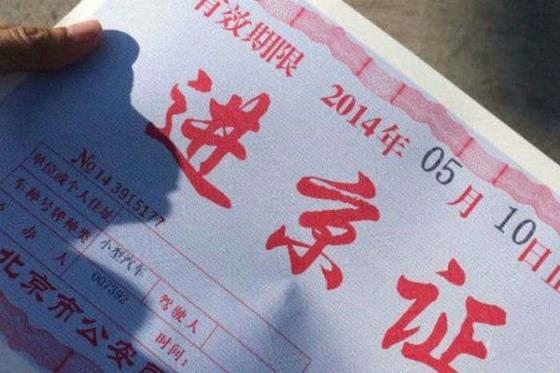 有效期限
2014年 05月 10日
进京证
No 14 3915177
单位或个人住址
车种号牌种类 小型汽车
办人 007392 驾驶人
时间:
北京市公安